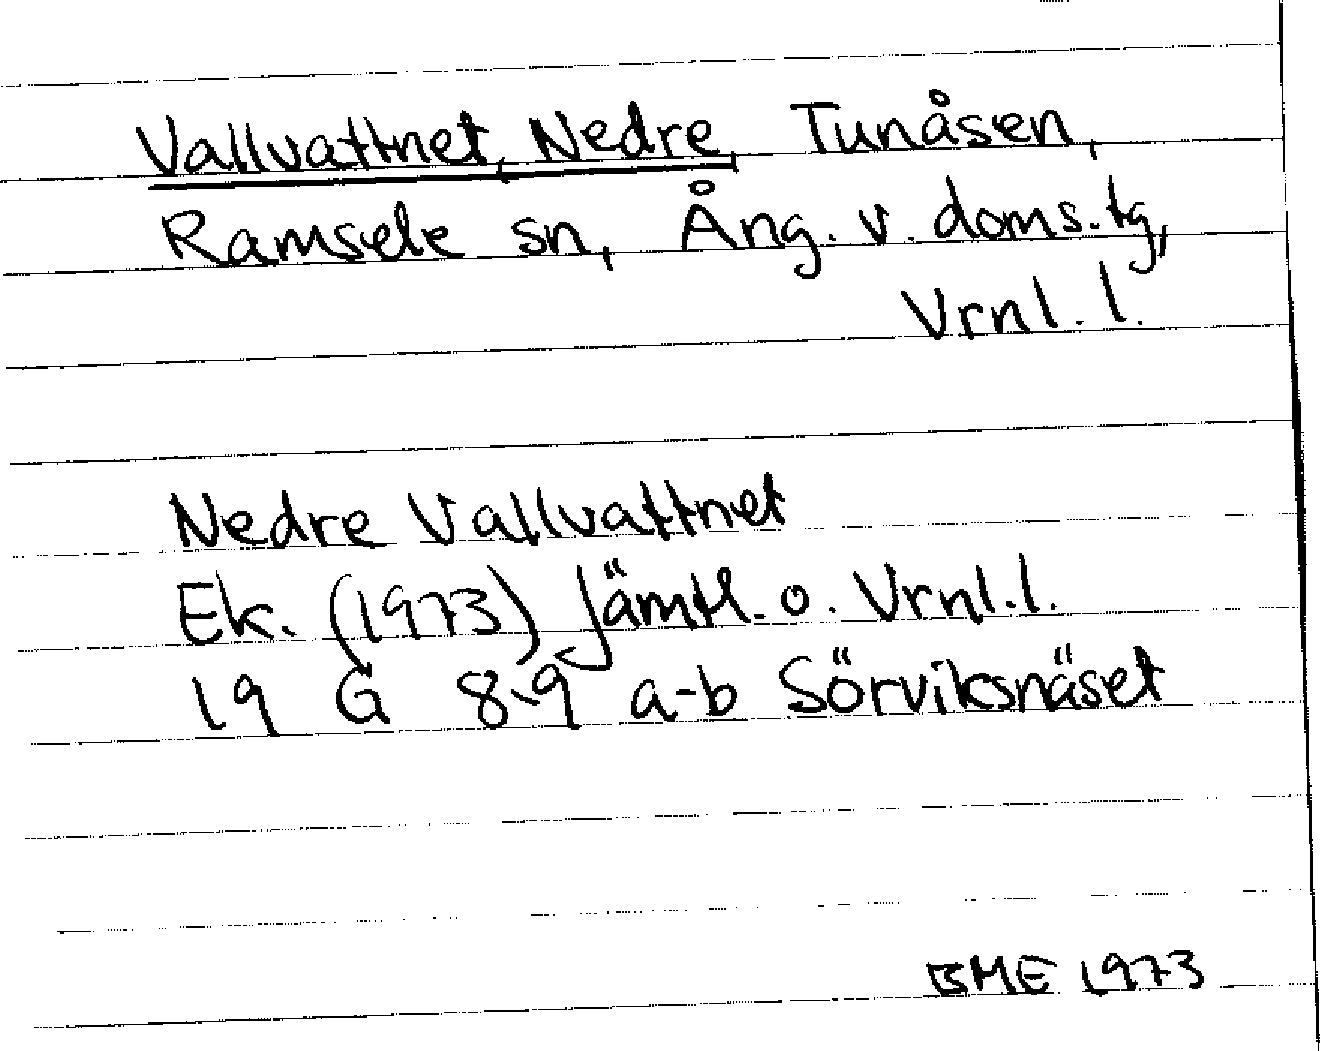 Vallvattnet, Nedre, Tunåsen,
Ramsele sn, Ång. v. doms.tg,
Vrnl. l.
Nedre Vallvattnet
Ek. (1973) Jämtl. o. Vrnl.l.
19 G 8-9 a-b Sörviksnäset
BME 1973